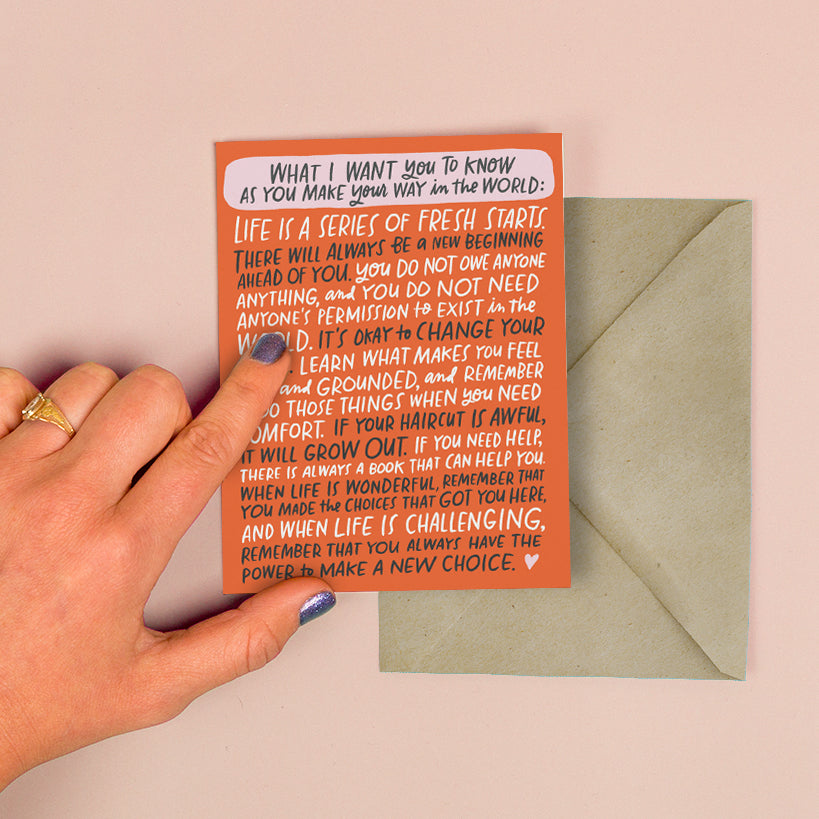 WHAT I WANT you TO KNOW
AS YOU MAKE your WAY in the WORLD:
LIFE IS A SERIES OF FRESH STARTS.
THERE WILL ALWAYS BE a NEW BEGINNING
AHEAD OF YOU. you DO NOT OWE ANYONE
ANYTHING, and YOU DO NOT NEED
ANYONE'S PERMISSION to EXIST in the
WORLD. IT'S OKAY to CHANGE YOUR
LEARN WHAT MAKES you FEEL
and GROUNDED, and REMEMBER
DO THOSE THINGS WHEN you NEED
COMFORT. IF YOUR HAIRCUT IS AWFUL,
IT WILL GROW OUT. IF YOU NEED HELP,
THERE IS ALWAYS A BOOK THAT CAN HELP YOU.
WHEN LIFE IS WONDERFUL, REMEMBER THAT
YOU MADE the CHOICES THAT GOT YOU HERE,
AND WHEN LIFE IS CHALLENGING,
REMEMBER THAT YOU ALWAYS HAVE THE
POWER to MAKE A NEW CHOICE.